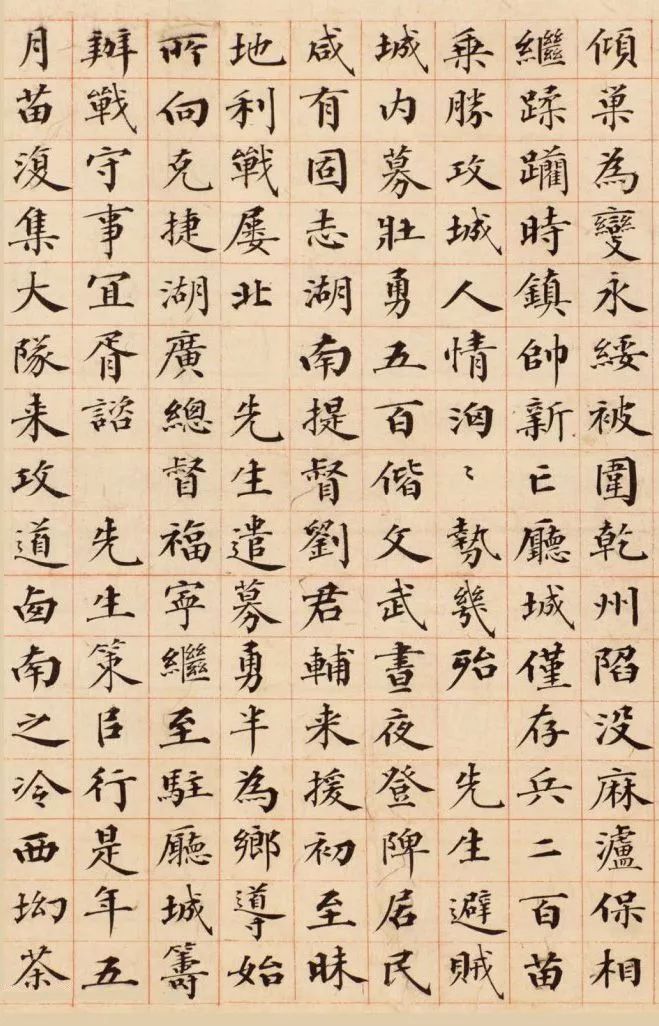 傾巢為變永綏被圍乾州陷没麻瀘保相
繼蹂躪時鎮帥新亡廳城僅存兵二百苗
乗勝攻城人情洶〻勢幾殆 先生避賊
城内募壯勇五百偕文武晝夜登陴居民
咸有固志湖南提督劉君輔来援初至昧
地利戰屢北 先生遣募勇半為鄉導始
所向克捷湖廣總督福寧繼至駐廳城籌
辦戰守事宜胥諮 先生策㠯行是年五
月苗復集大隊来攻道卥南之冷西坳茶